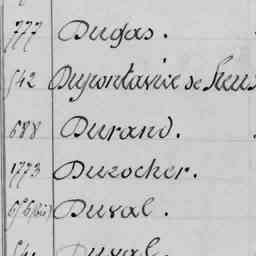 777 Dugas.
542 Dupontavice de
688 Durand.
1773 Durocher.
Duval.
Duval.